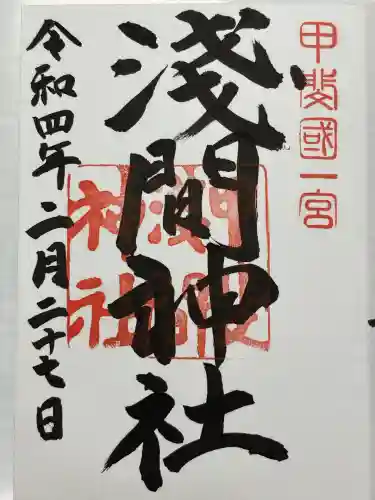 甲斐國一宮
淺間神社
淺間神社
令和四年二月二十七日